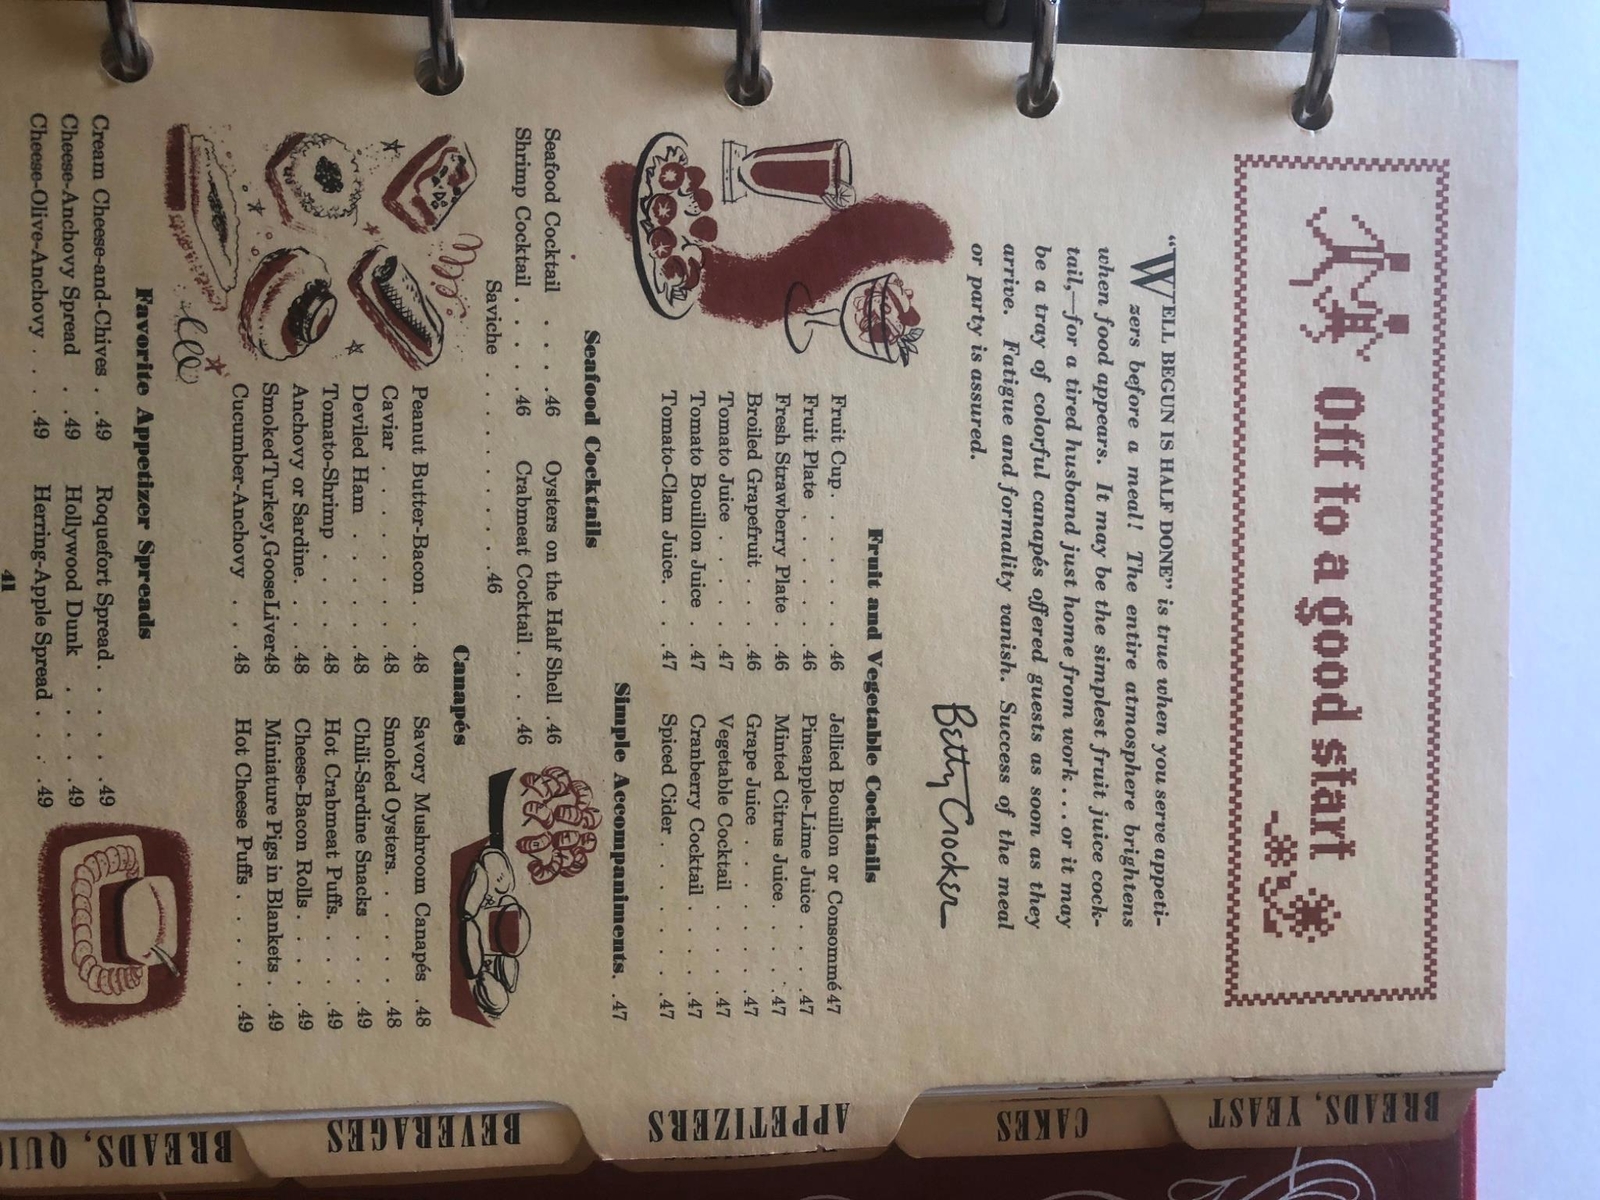 Off to a good start
"WELL BEGUN IS HALF DONE" is true when you serve appeti-
zers before a meal! The entire atmosphere brightens
when food appears. It may be the simplest fruit juice cock-
tail,—for a tired husband just home from work . . . or it may
be a tray of colorful canapés offered guests as soon as they
arrive. Fatigue and formality vanish. Success of the meal
or party is assured.
Betty Crocker
Fruit and Vegetable Cocktails
Fruit Cup . . . . . . .46
Fruit Plate . . . . . .46
Fresh Strawberry Plate . .46
Broiled Grapefruit . . . .46
Tomato Juice . . . . . .47
Tomato Bouillon Juice . .47
Tomato-Clam Juice. . . .47
Jellied Bouillon or Consommé 47
Pineapple-Lime Juice . . .47
Minted Citrus Juice. . . . .47
Grape Juice . . . . . . .47
Vegetable Cocktail . . . .47
Cranberry Cocktail . . . .47
Spiced Cider . . . . . . .47
Simple Accompaniments. .47
Seafood Cocktails
Seafood Cocktail . . . .46
Shrimp Cocktail . . . . .46
Oysters on the Half Shell .46
Crabmeat Cocktail . . . .46
Saviche . . . . . . . . .46
Canapés
Peanut Butter-Bacon . . .48
Caviar . . . . . . . .48
Deviled Ham . . . . . .48
Tomato-Shrimp . . . . .48
Anchovy or Sardine. . . .48
Smoked Turkey, Goose Liver 48
Cucumber-Anchovy . . .48
Savory Mushroom Canapés .48
Smoked Oysters. . . . . .48
Chili-Sardine Snacks . . .49
Hot Crabmeat Puffs. . . .49
Cheese-Bacon Rolls . . . .49
Miniature Pigs in Blankets . .49
Hot Cheese Puffs . . . . .49
Favorite Appetizer Spreads
Cream Cheese-and-Chives . .49
Cheese-Anchovy Spread . .49
Cheese-Olive-Anchovy . . .49
Roquefort Spread. . . . .49
Hollywood Dunk . . . . .49
Herring-Apple Spread . . .49
41
BREADS, YEAST
CAKES
APPETIZERS
BEVERAGES
BREADS, QUIC